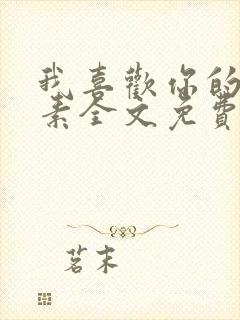 我喜歡你的
素全文免費
茗末